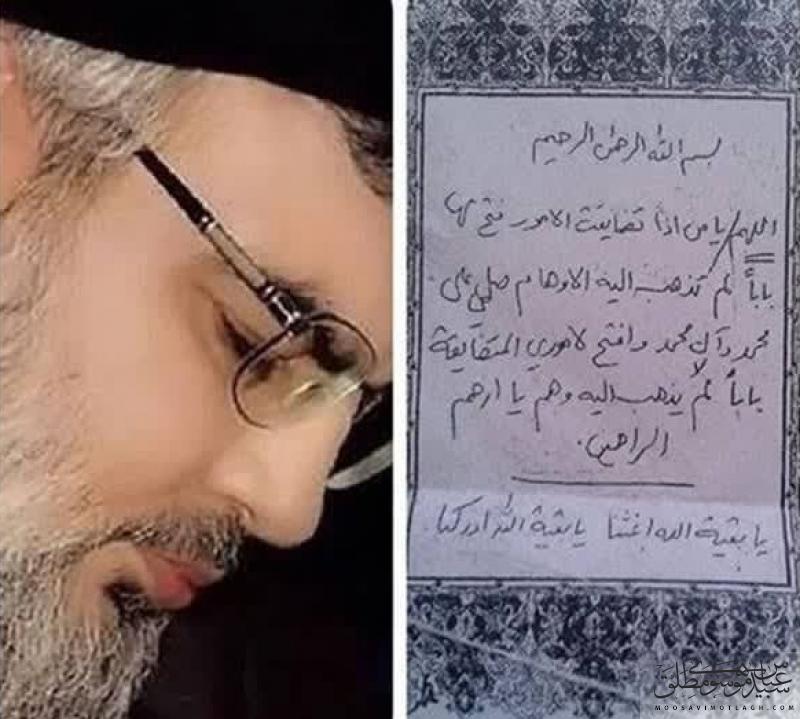 بسم الله الرحمن الرحيم
اللهم يا من اذا تضايقت الامور فتح لها
باباً لم تذهب اليه الاوهام صلي على
محمد وآل محمد وافتح لاموري المتضايقة
باباً لم يذهب اليه وهم يا ارحم
الراحمين.
يا بقية الله اغثنا يا بقية الله ادركنا.
MOOSAVIMOTLAGH.COM